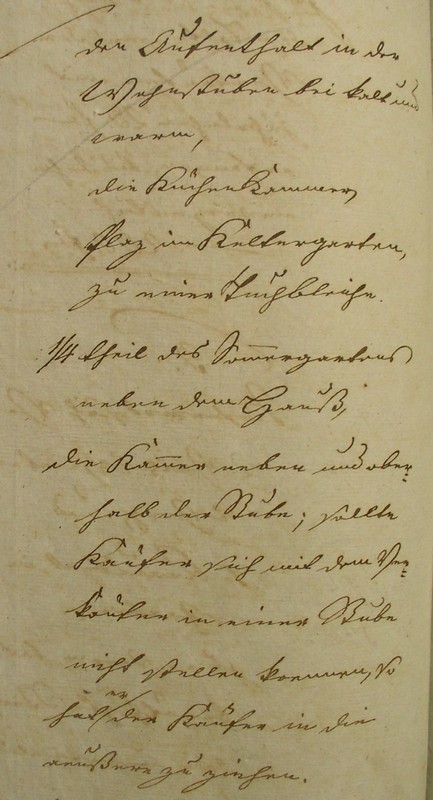 den Aufenthalt in der
Wohnstuben bei kalt und
warm,
die Küchenkammer,
Plaz im Keltergarten,
zu einer Tuchbleiche.
1/4 theil des Sommergartens
neben dem Hauß,
die Kam̄er neben und ober-
halb der Stube; sollte
Käufer sich mit dem Ver-
käufer in einer Stube
nicht stellen koennen, so
hat er der Käufer in die
aeußere zu ziehen.